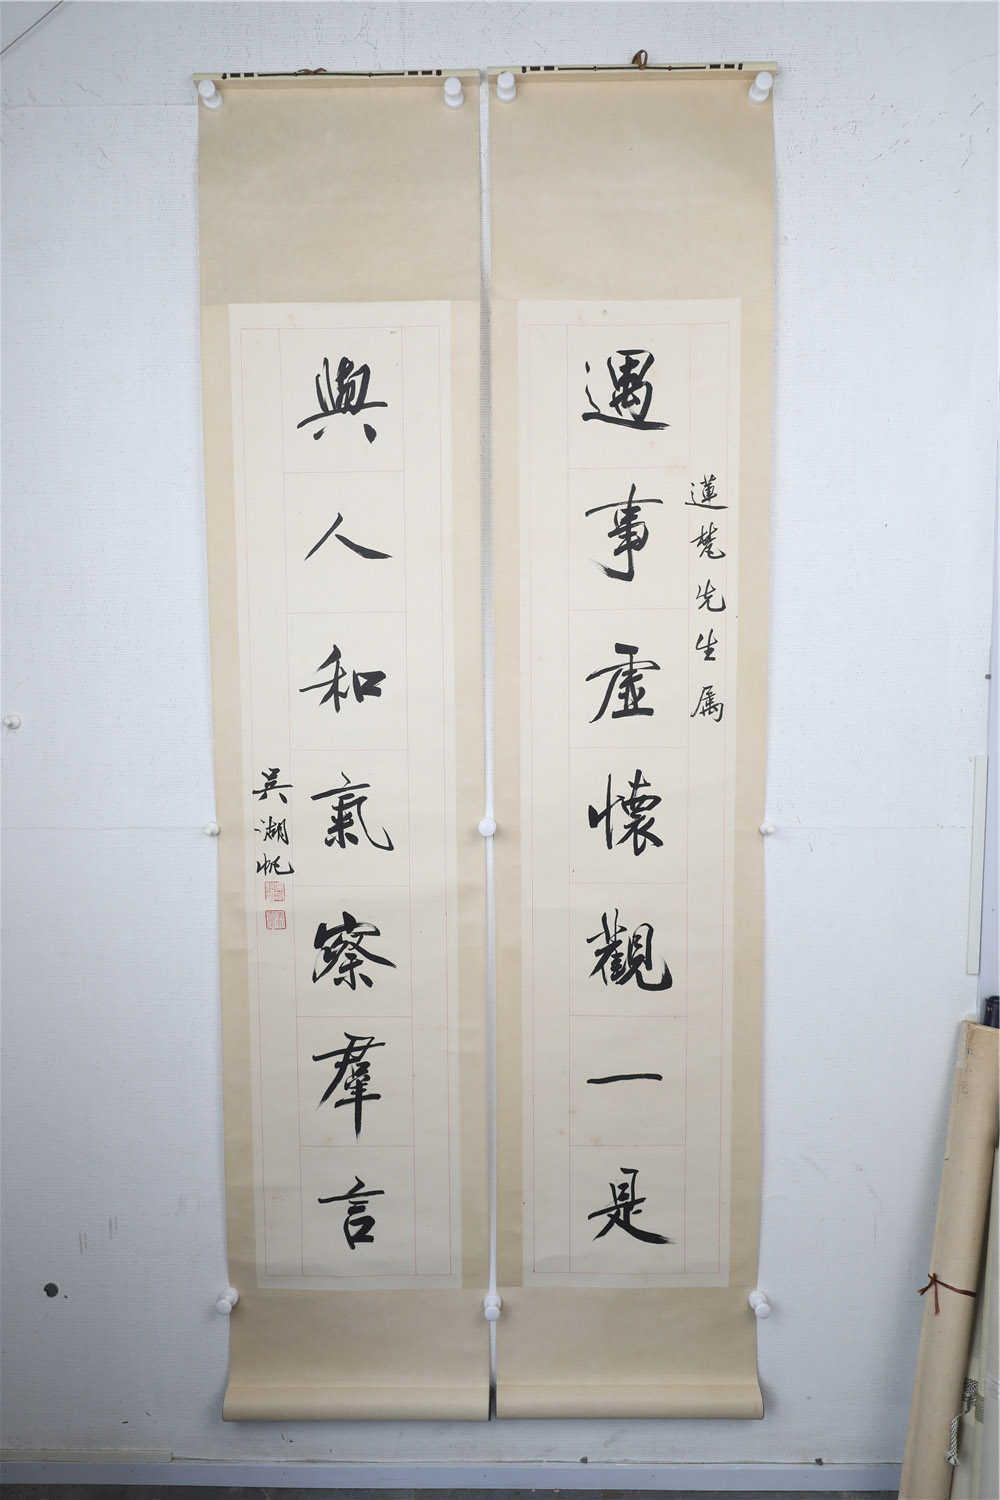 遇事虛懷觀一是
蓮梵先生属
與人和氣察羣言
吳湖帆